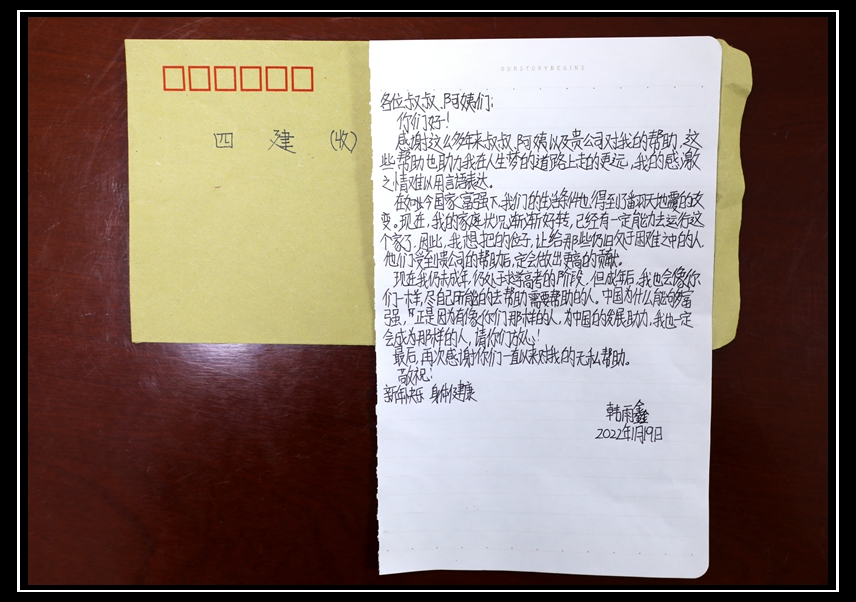 四 建 (收)
OURSTORYBEGINS
各位叔叔、阿姨们:
你们好!
感谢这么多年来叔叔、阿姨以及贵公司对我的帮助,这
些帮助也助力我在人生梦的道路上走的更远,我的感激
之情难以用言语表达。
在如今国家富强下,我们的生活条件也得到了翻天地覆的改
变。现在,我的家庭状况渐渐好转,已经有一定能力去运行这
个家了,因此,我想把的位子,让给那些仍旧处于困难之中的人
他们受到贵公司的帮助后,定会做出更高的贡献。
现在我仍未成年,仍处于备高考的阶段,但成年后,我也会像你
们一样,尽自己所能的去帮助需要帮助的人。中国为什么能够富
强,"正是因为有像你们那样的人,为中国的发展助力,我也一定
会成为那样的人,请你们放心!
最后,再次感谢你们一直以来对我的无私帮助。
敬祝:
新年快乐 身体健康
韩雨鑫
2022年1月19日